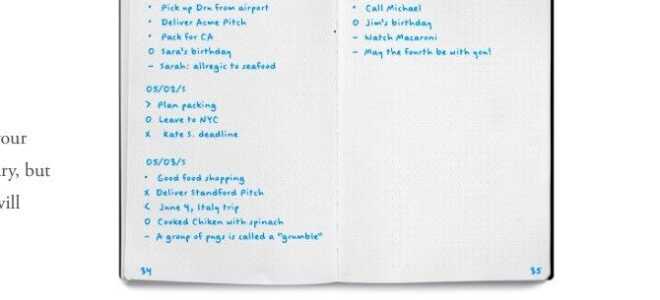 our
ry, but
will
• Pick up Dru from airport
• Deliver Acme Pitch
• Pack for CA
O Sara's birthday
– Sarah: allregic to seafood
05/02/S
> Plan packing
O Leave to NYC
X Kate S. deadline
05/03/S
• Good food shopping
X Deliver Standford Pitch
< June 4, Italy trip
O Cooked Chiken with spinach
– A group of pugs is called a "grumble"
34
• Call Michael
O Jim's birthday
– Watch Macaroni
– May the fourth be with you!
35